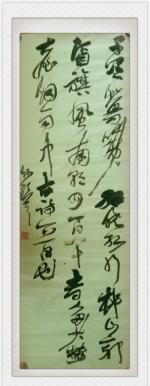 千里鶯啼綠映紅水村山郭
酒旗風南朝四百八十寺多少樓
台烟雨中古詩一首